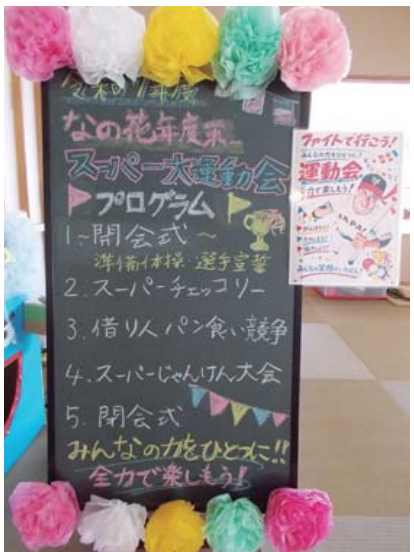 令和7年度
なの花年度末
スーパー大運動会
プログラム
1~開会式~
準備体操・選手宣誓
2.スーパーチェッコリー
3.借り人パン食い競争
4.スーパーじゃんけん大会
5.閉会式
みんなの力をひとつに!!
全力で楽しもう!
ファイトで行こう!
みんなの力をひとつに!
運動会
全力で楽しもう!
JAPAN